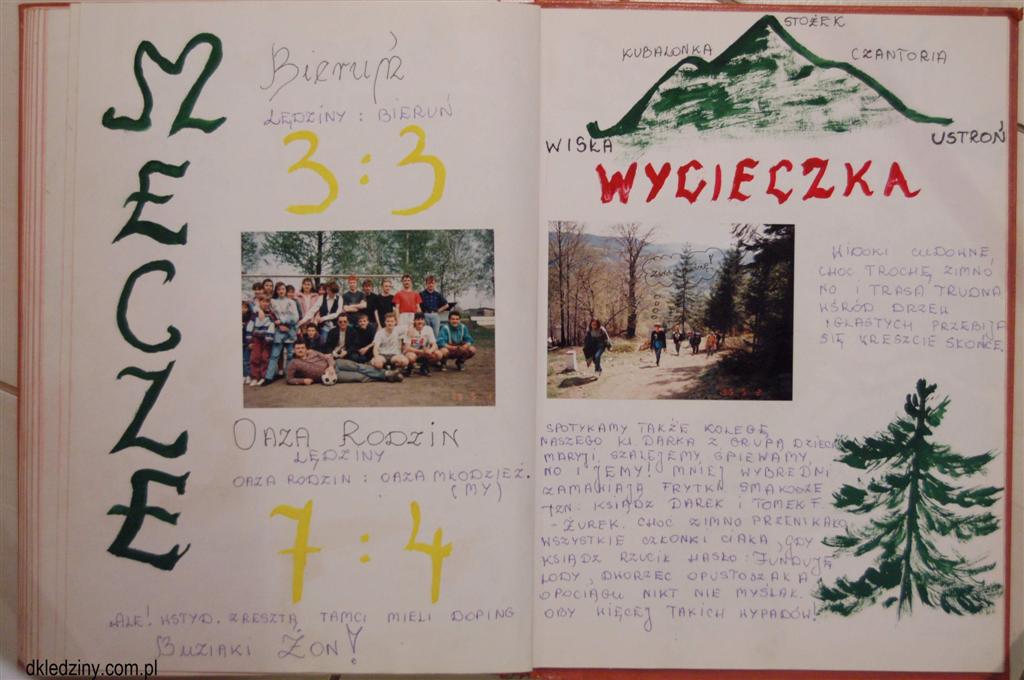 MECZE
Bieruń
LĘDZINY : BIERUŃ
3 : 3
OAZA RODZIN
LĘDZINY
OAZA RODZIN : OAZA MŁODZIEŻ.
(MY)
7 : 4
ALE! WSTYD. ZRESZTĄ TAMCI MIELI DOPING
BUZIAKI ŻON!
dkledziny.com.pl
STOŻEK
KUBALONKA
CZANTORIA
WISŁA
USTROŃ
WYCIECZKA
WIDOKI CUDOWNE,
CHOĆ TROCHĘ ZIMNO
NO I TRASA TRUDNA
WŚRÓD DRZEW
IGLASTYCH PRZEBIJA
SIĘ WRESZCIE SŁOŃCE.
SPOTYKAMY TAKŻE KOLEGĘ
NASZEGO KL. DARKA Z GRUPĄ DZIECI
MARYJI, SZALEJEMY, ŚPIEWAMY,
NO I JEMY! MNIEJ WYBREDNI
ZAMAWIAJĄ FRYTKI SMAKOSZE
TZN. KSIĄDZ DAREK I TOMEK F.
- ŻUREK. CHOĆ ZIMNO PRZENIKAŁO
WSZYSTKIE CZŁONKI CIAŁA, GDY
KSIĄDZ RZUCIŁ HASŁO: FUNDUJĘ
LODY, DWORZEC OPUSTOSZAŁ A
O POCIĄGU NIKT NIE MYŚLAŁ.
OBY WIĘCEJ TAKICH WYPADÓW!